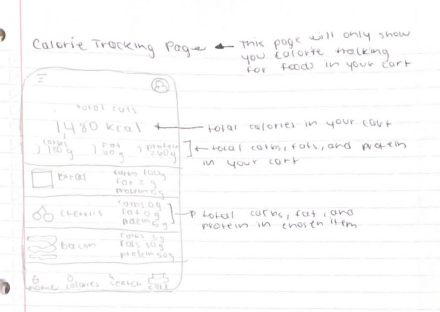 Calorie Tracking Page ← This page will only show
you calorie tracking
for food in your cart
total cals
1480 kcal ← total calories in your cart
carbs fat protein
← total carbs, fats, and protein
in your cart
Bread carbs 100g
fat 2g
protein 5g
Cherries carbs 0g
fat 0g
protein 5g
→ total carbs, fat, and
protein in chosen item
Bacon carbs 5g
fats 50g
protein 50g
home calories search cart